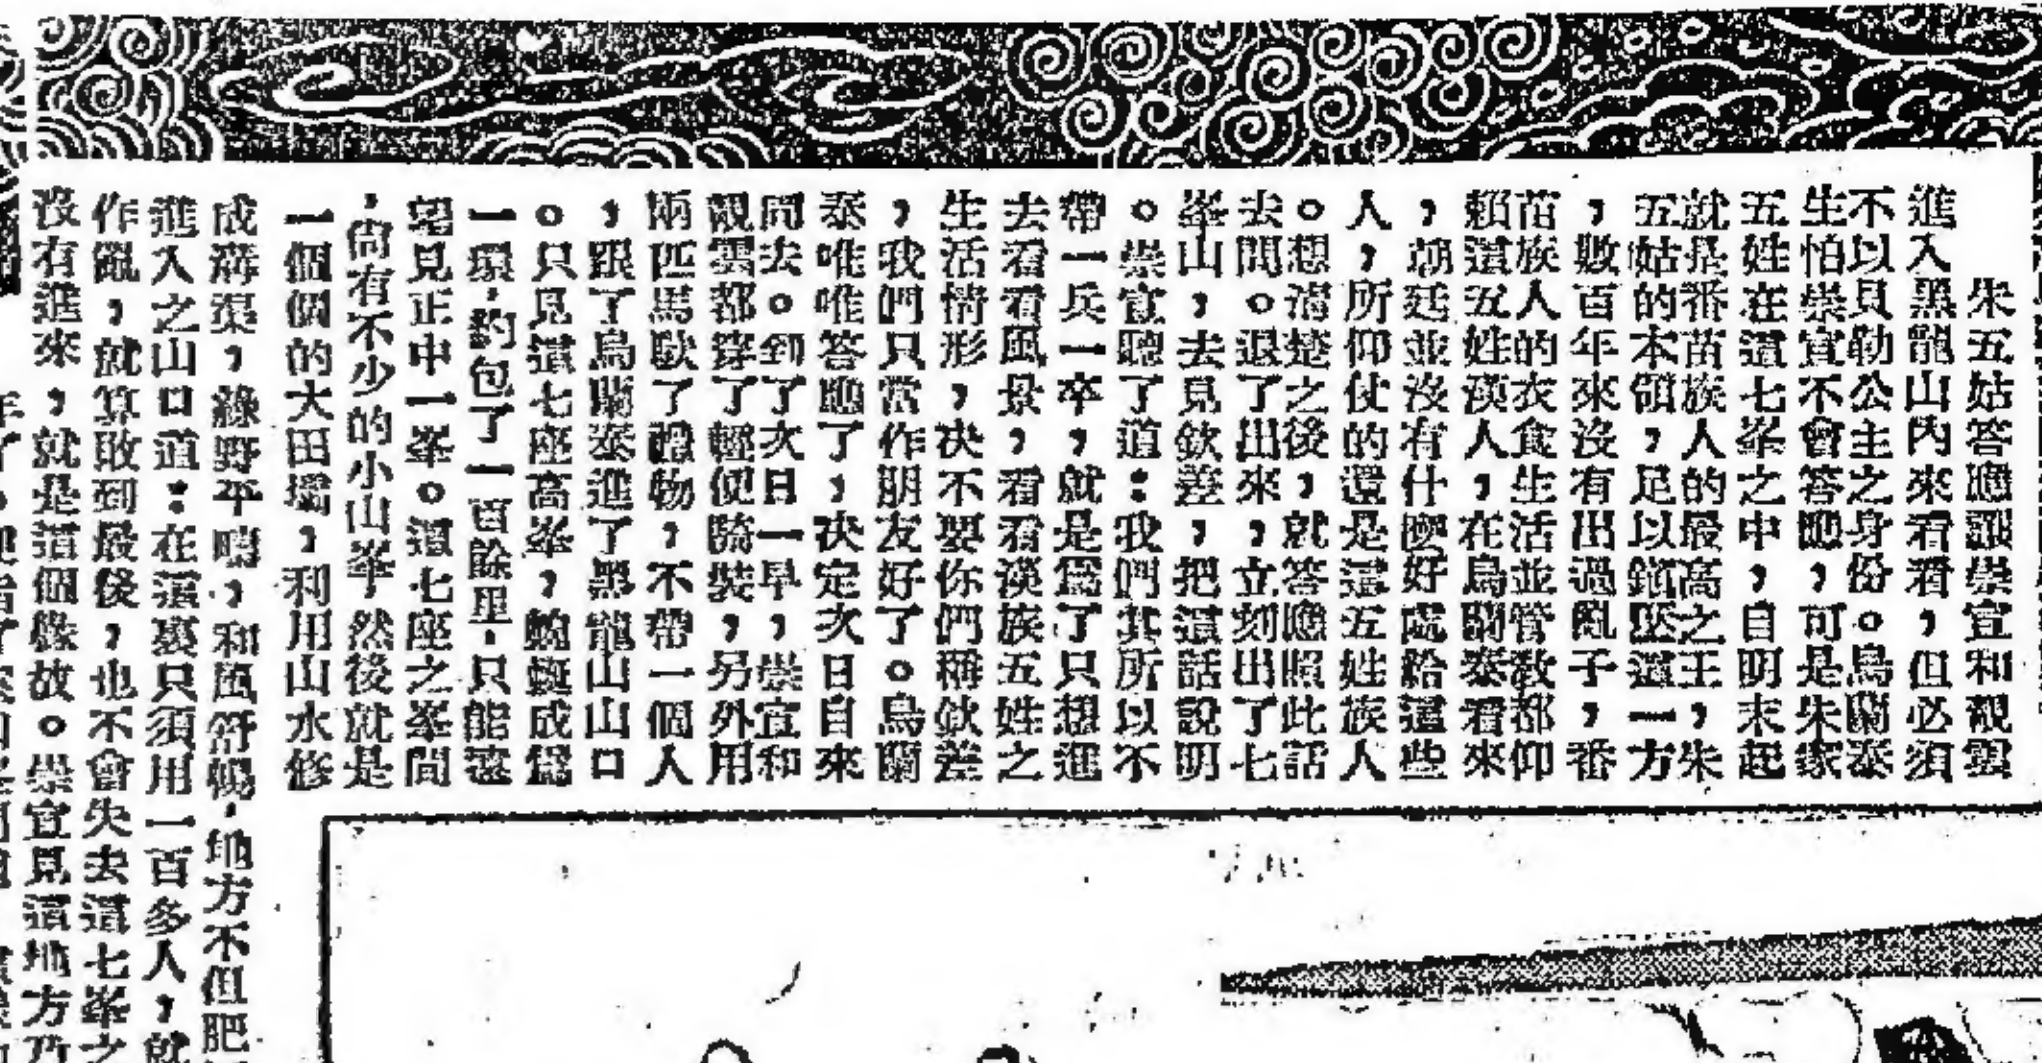 朱五姑答應讓崇宣和靚雲
進入黑龍山內來看看，但必須
不以貝勒公主之身份。烏蘭泰
生怕崇宣不會答應，可是朱家
五姓在這七峯之中，自明末起
就是番苗族人的最高之王，朱
五姑的本領，足以鎮壓這一方
，數百年來沒有出過亂子，番
苗族人的衣食生活並管教都仰
賴這五姓漢人，在烏蘭泰看來
，朝廷並沒有什麼好處給這些
人，所仰仗的還是這五姓族人
。想清楚之後，就答應照此話
去問。退了出來，立刻出了七
峯山，去見欽差，把這話說明
。崇宣聽了道：我們其所以不
帶一兵一卒，就是爲了只想進
去看看風景，看看漢族五姓之
生活情形，决不要你們稱欽差
，我們只當作朋友好了。烏蘭
泰唯唯答應了，决定次日自來
問去。到了次日一早，崇宣和
靚雲都穿了輕便騎裝，另外用
兩匹馬馱了禮物，不帶一個人
，跟了烏蘭泰進了黑龍山山口
。只見這七座高峯，蜿蜒成爲
一環，約包了一百餘里，只能遠
望見正中一峯。這七座之峯間
，尙有不少的小山峯，然後就是
一個個的大田壩，利用山水修
成溝渠，綠野平疇，和風舒暢，地方不但肥
進入之山口道：在這裏只須用一百多人，就
作亂，就算敢到最後，也不會失去這七峯之
沒有進來，就是這個緣故。崇宣見這地方乃